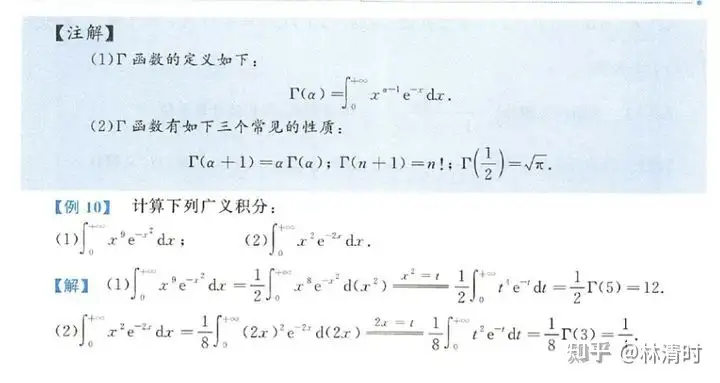 【注解】
(1)Γ函数的定义如下：
Γ(α)=∫₀^{+∞} x^{α-1}e^{-x}dx.
(2)Γ函数有如下三个常见的性质：
Γ(α+1)=αΓ(α)；Γ(n+1)=n!；Γ(1/2)=√π.
【例10】 计算下列广义积分：
(1)∫₀^{+∞} x⁹e^{-x²}dx； (2)∫₀^{+∞} x²e^{-2x}dx.
【解】 (1)∫₀^{+∞} x⁹e^{-x²}dx=1/2∫₀^{+∞} x⁸e^{-x²}d(x²) x²=t 1/2∫₀^{+∞} t⁴e^{-t}dt=1/2Γ(5)=12.
(2)∫₀^{+∞} x²e^{-2x}dx=1/8∫₀^{+∞} (2x)²e^{-2x}d(2x) 2x=t 1/8∫₀^{+∞} t²e^{-t}dt=1/8Γ(3)=1/
知乎 @林清时